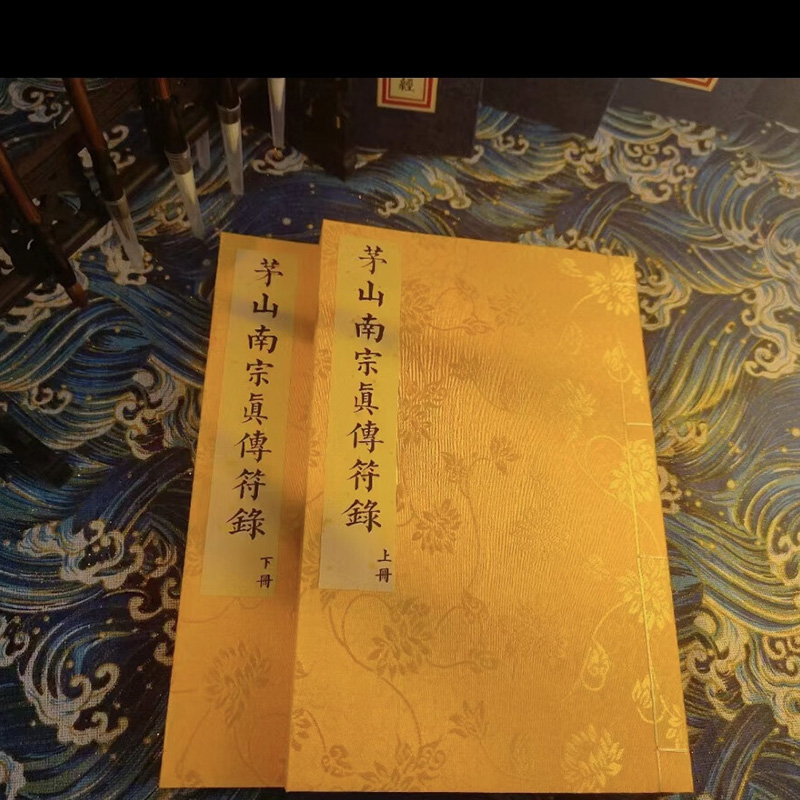 經
茅山南宗眞傳符錄
上冊
茅山南宗眞傳符錄
下冊